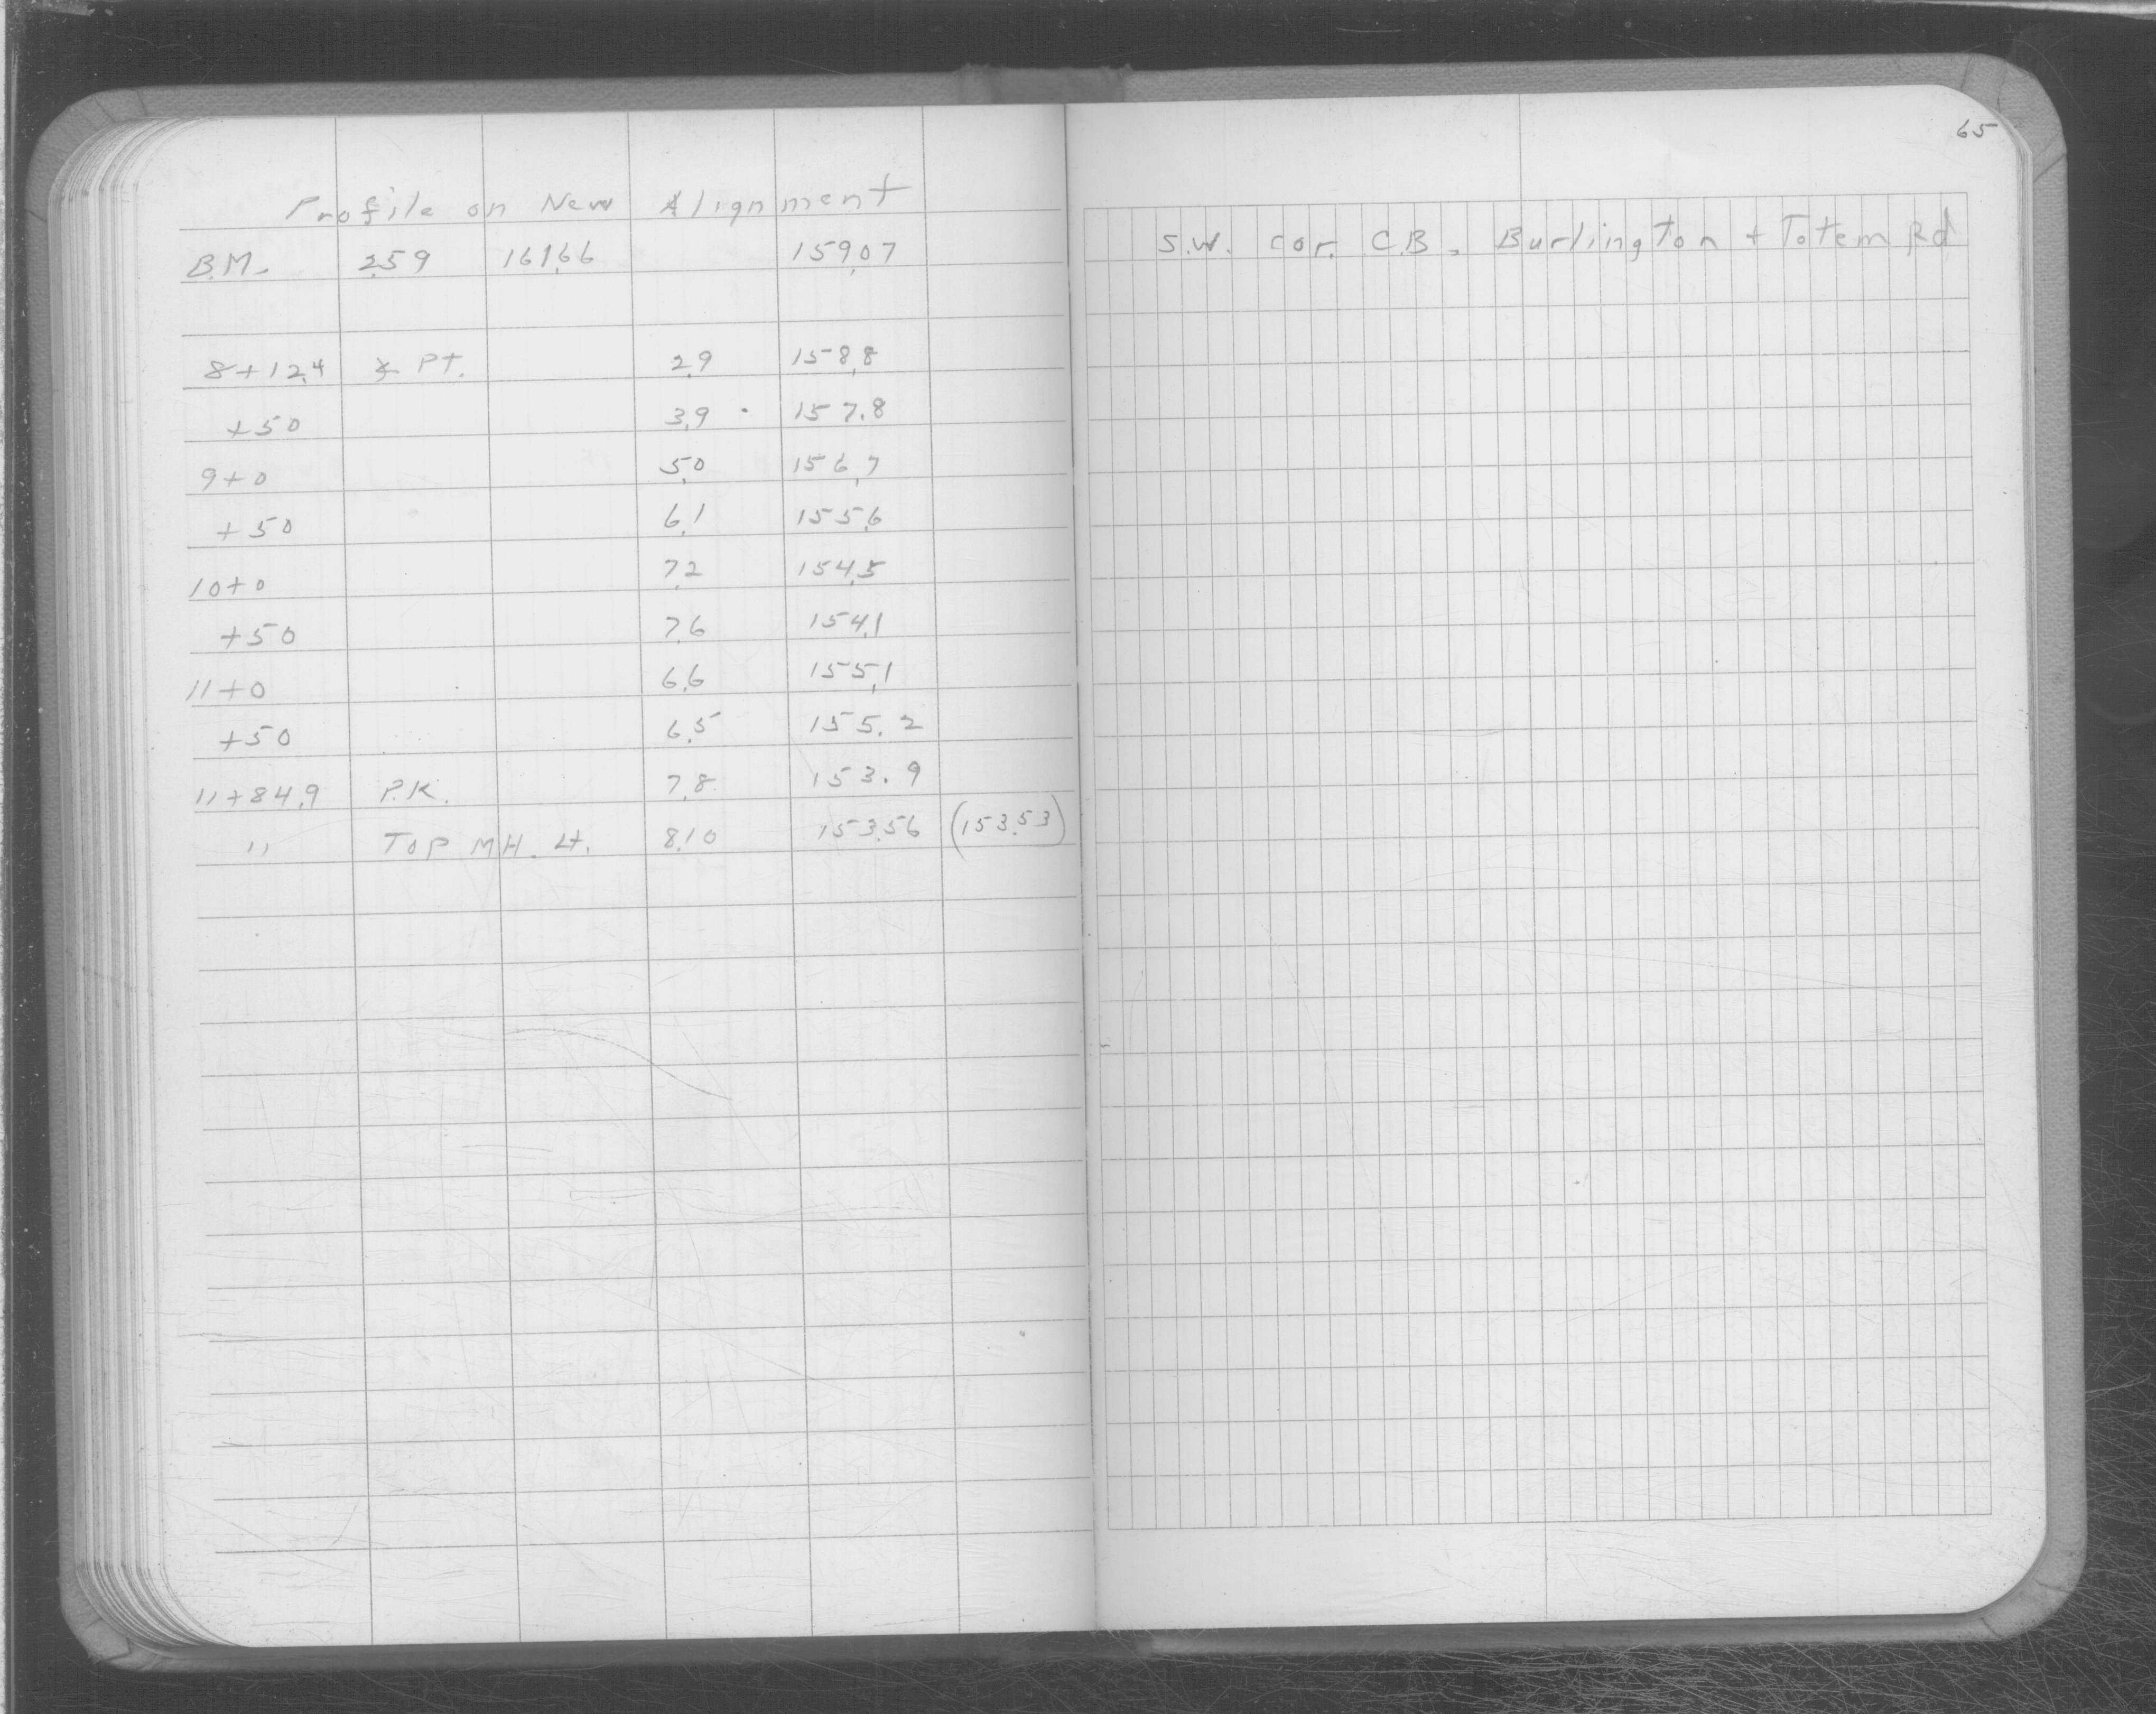 65
Profile on New Alignment
B.M. 2.59 161.66 159.07 S.W. cor. C.B. Burlington + Totem Rd
8+12.4 ⨯ Pt. 2.9 158.8
+50 3.9 157.8
9+0 5.0 156.7
+50 6.1 155.6
10+0 7.2 154.5
+50 7.6 154.1
11+0 6.6 155.1
+50 6.5 155.2
11+84.9 P.K. 7.8 153.9
" Top MH. Lt. 8.10 153.56 (153.53)